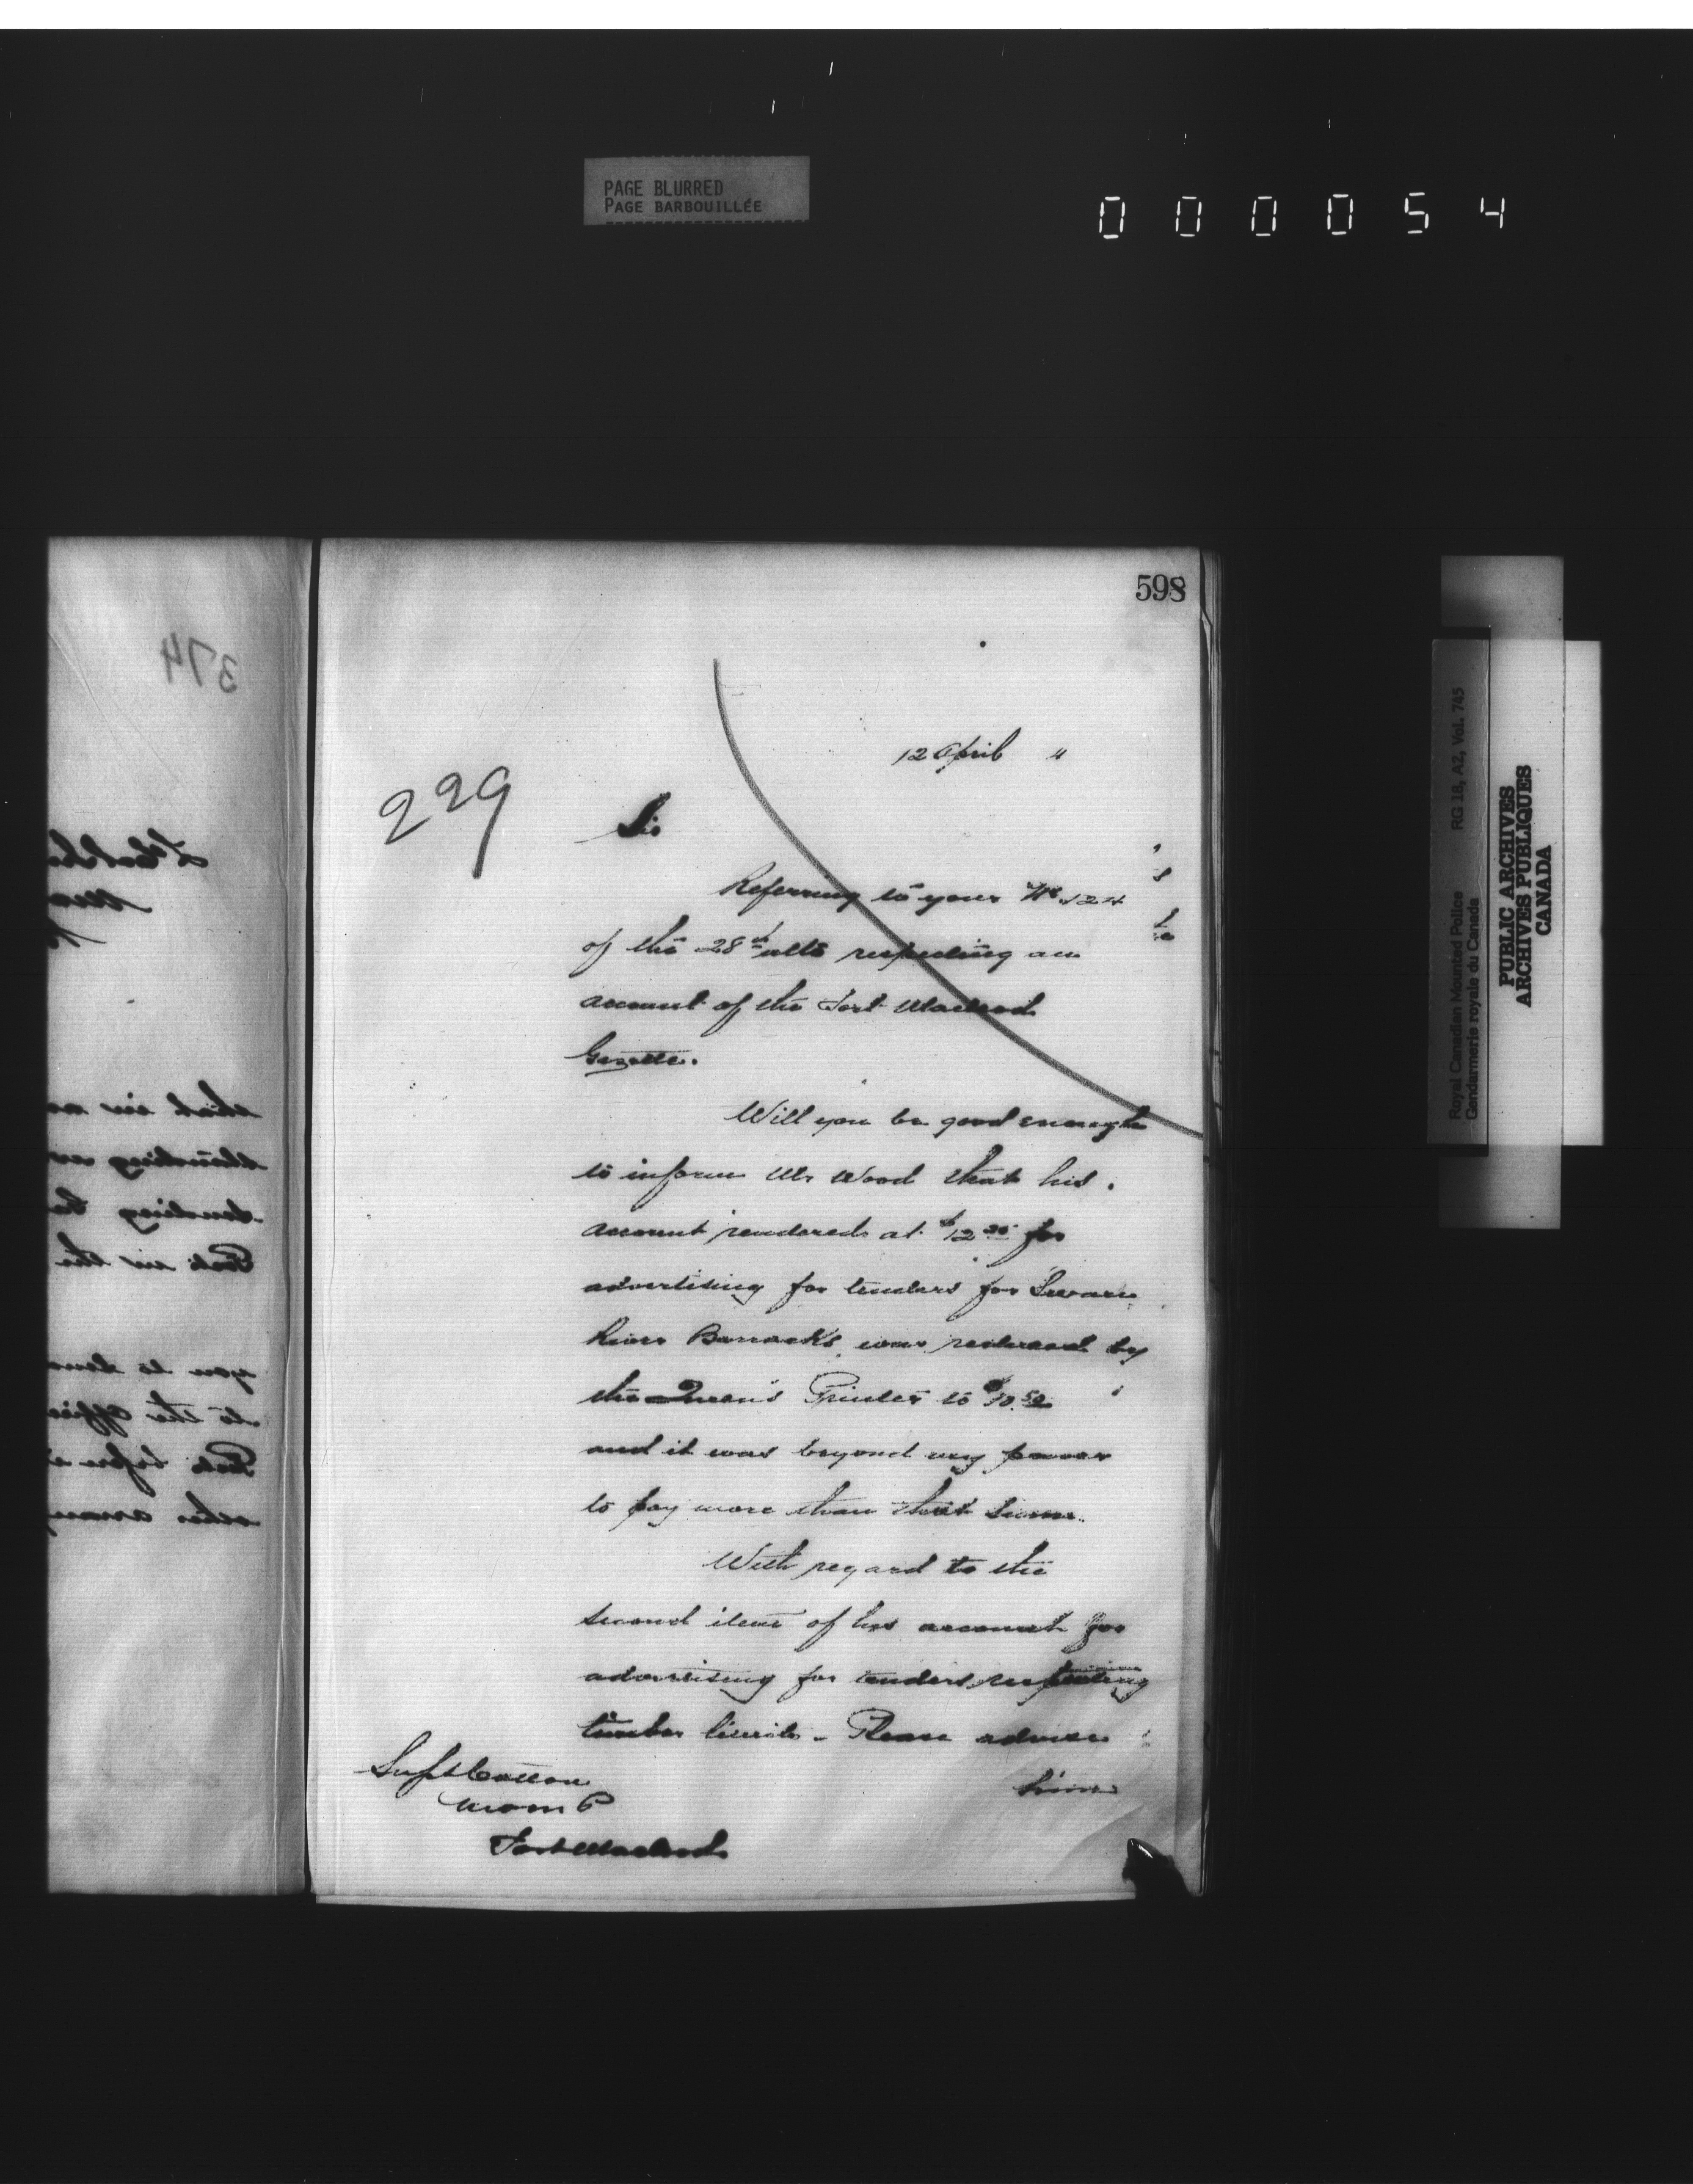 PAGE BLURRED
PAGE BARBOUILLÉE
000054
598
374
12 April "
229
Sir
Referring to your No 124
of the 28th ulto respecting an
account of the Fort Macleod
Gazette.
Will you be good enough
to inform Mr Wood that his
account rendered at $12 for
advertising for tenders for Swan
River Barracks, was reduced by
the Queen's Printer to $10.50
and it was beyond my power
to pay more than that sum.
With regard to the
second item of his account for
advertising for tenders respecting
timber limits - Please advise
him
Supt Cotton
N W M P
Fort Macleod
Royal Canadian Mounted Police RG 18, A2, Vol. 745
Gendarmerie royale du Canada
PUBLIC ARCHIVES
ARCHIVES PUBLIQUES
CANADA